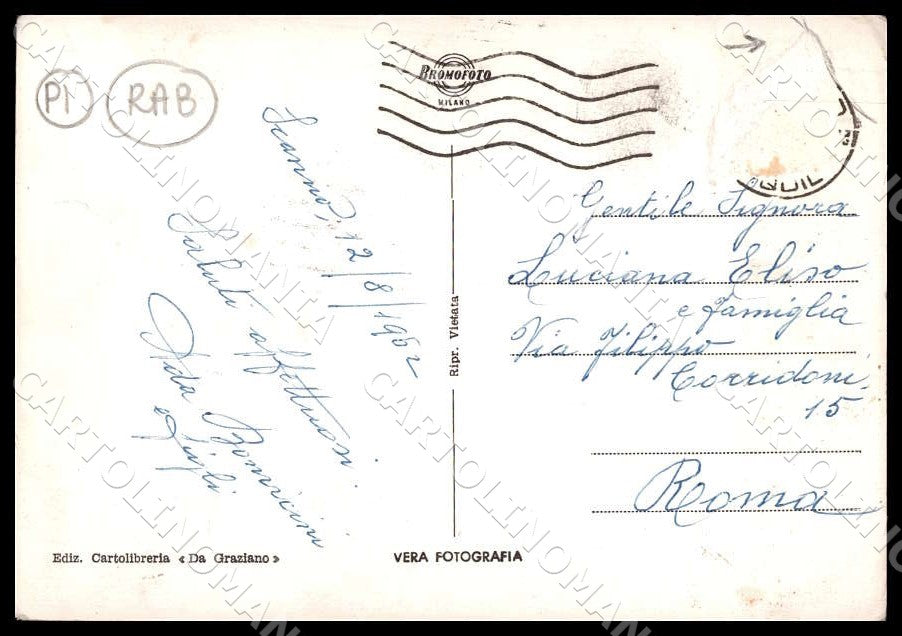 PI
RAB
BROMOFOTO
MILANO
AQUIL
Scanno, 12/8/1962
Saluti affettuosi
Aida
e figli
Ripr. Vietata
Gentile Signora
Luciana Eliso
e Famiglia
Via Filippo
Corridoni,
15
Roma
Ediz. Cartolibreria « Da Graziano »
VERA FOTOGRAFIA
CARTOLINOMANIA